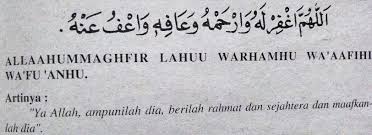 اللَّهُمَّ اغْفِرْ لَهُ وَارْحَمْهُ وَعَافِهِ وَاعْفُ عَنْهُ .
ALLAAHUMMAGHFIR LAHUU WARHAMHU WA'AAFIHI
WA'FU 'ANHU.
Artinya :
"Ya Allah, ampunilah dia, berilah rahmat dan sejahtera dan maafkan-
lah dia".